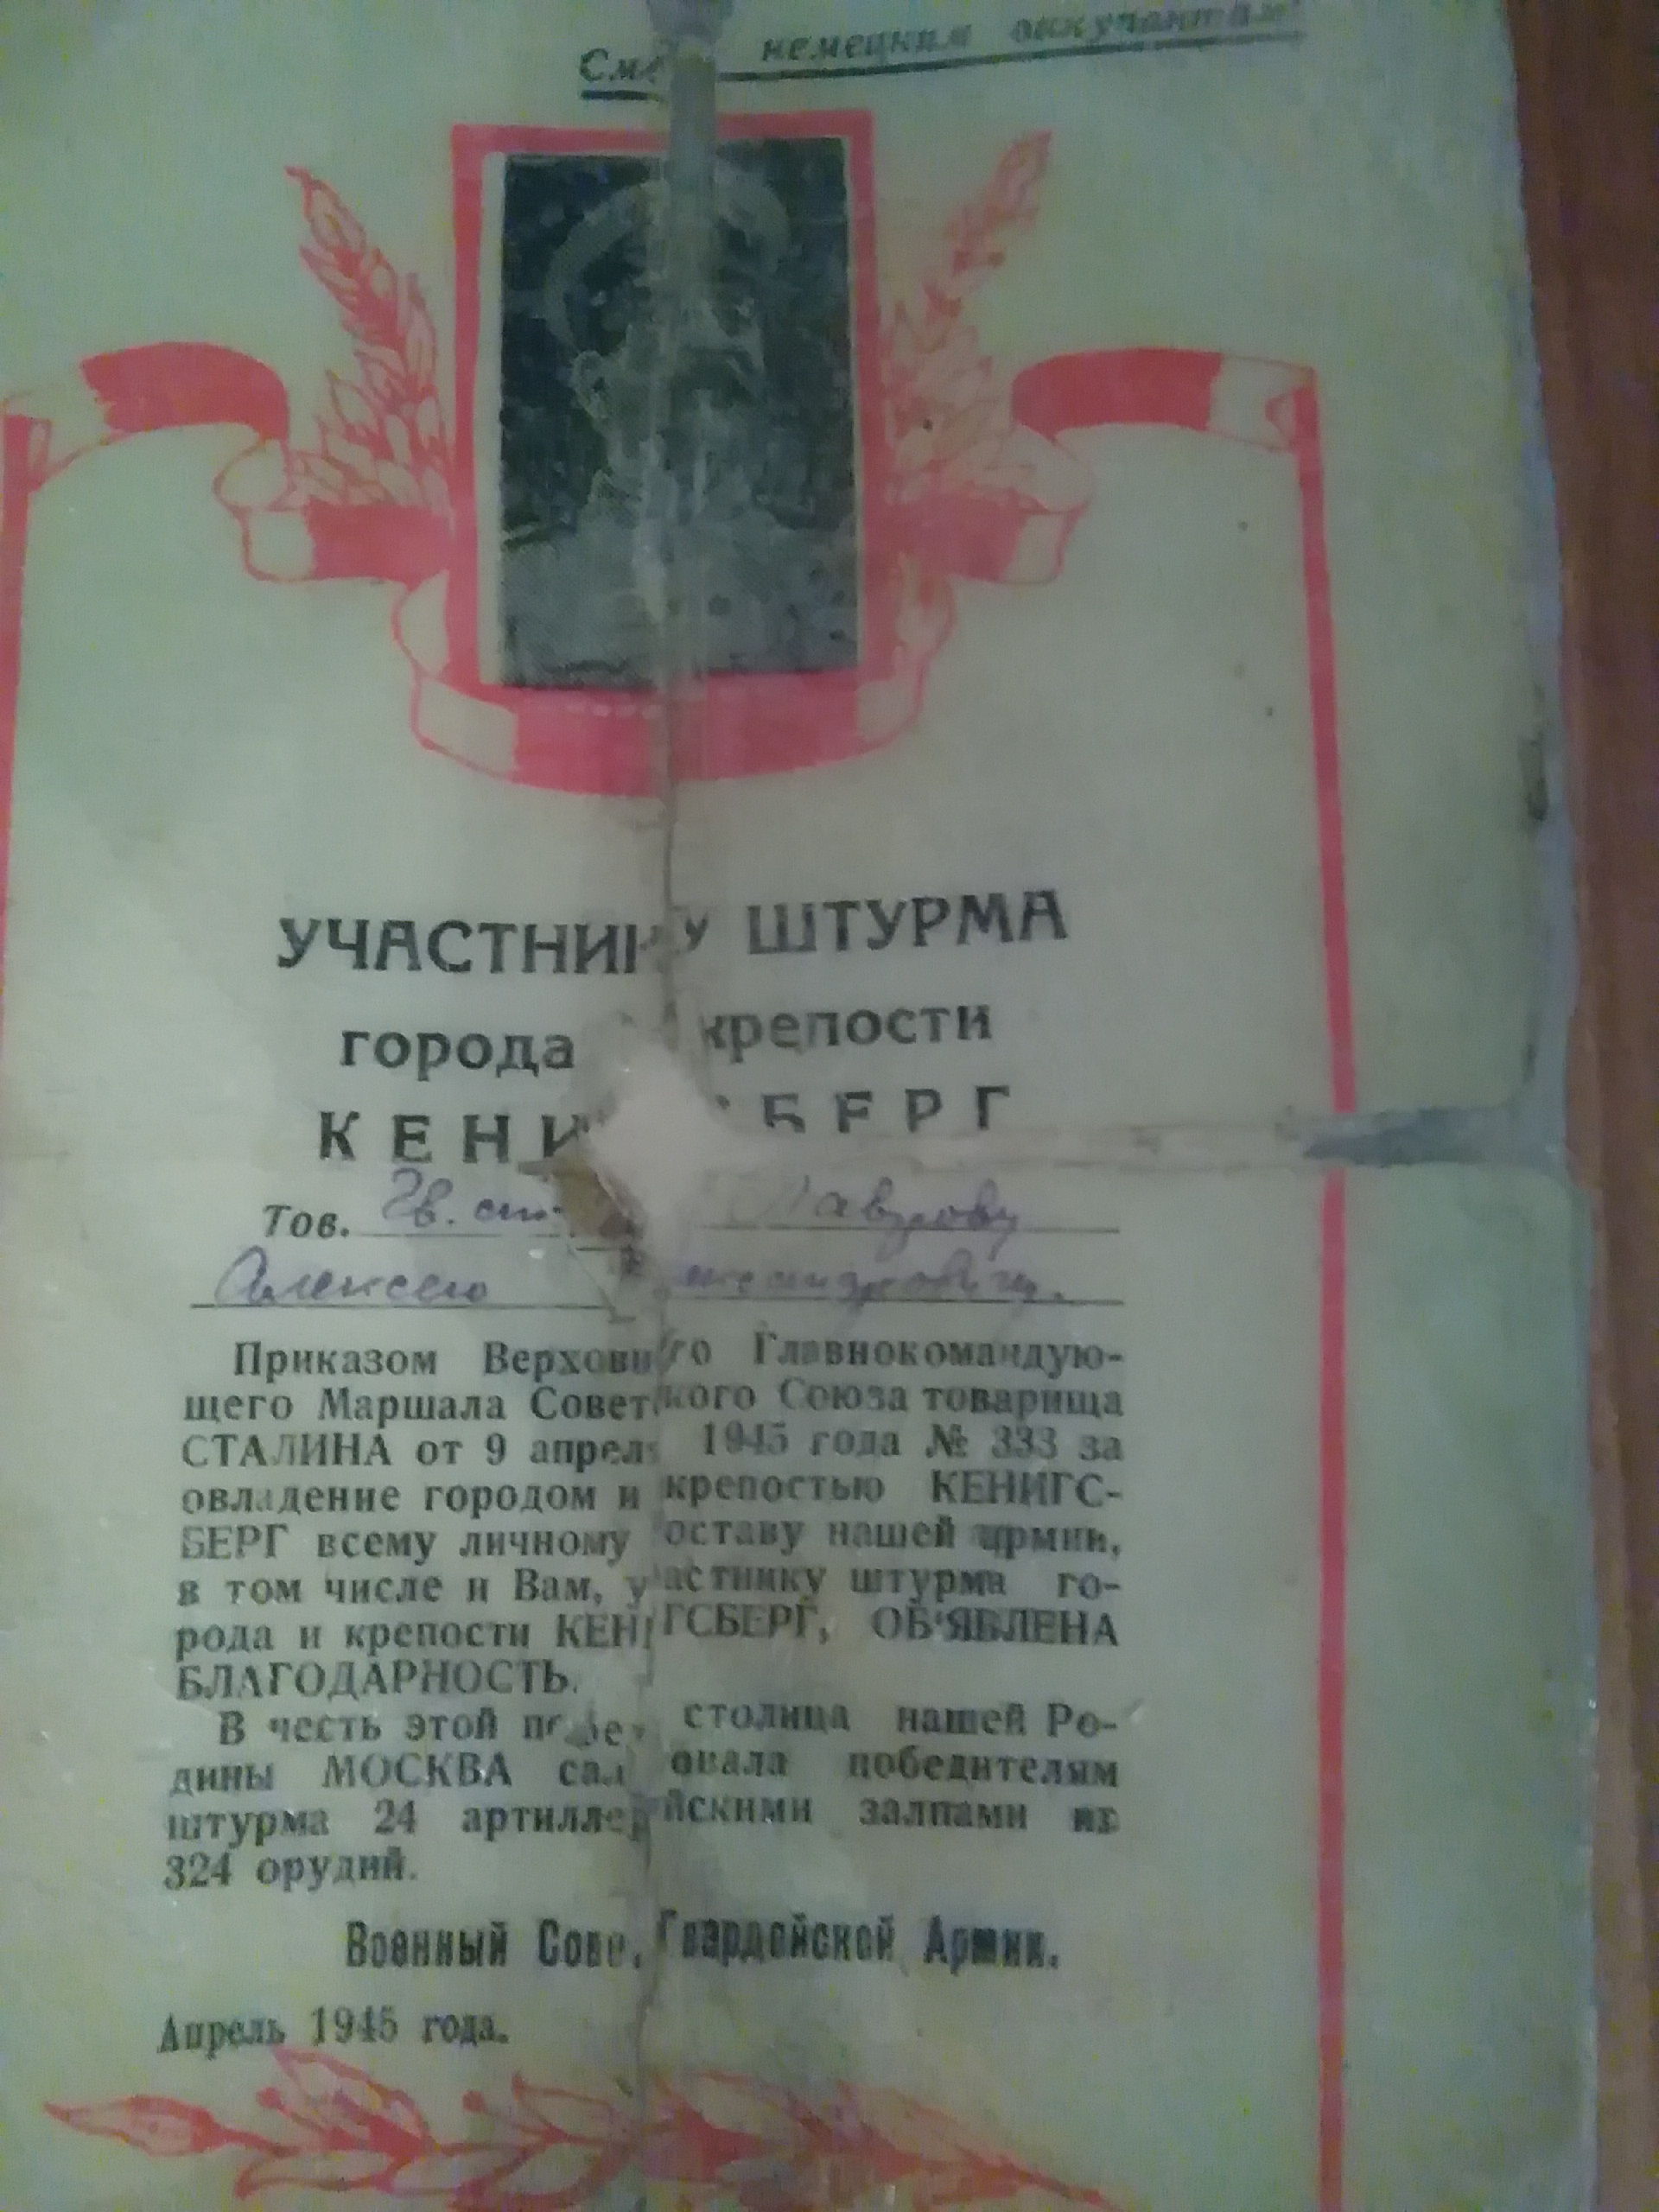 немецким оккупантам!
УЧАСТНИКУ ШТУРМА
города крепости
КЕНИГСБЕРГ
Тов. Гв. Лаврову
Алексею Александровичу.
Приказом Верховного Главнокомандую-
щего Маршала Советского Союза товарища
СТАЛИНА от 9 апреля 1945 года № 333 за
овладение городом и крепостью КЕНИГС-
БЕРГ всему личному составу нашей армии,
в том числе и Вам, участнику штурма го-
рода и крепости КЕНИГСБЕРГ, ОБ'ЯВЛЕНА
БЛАГОДАРНОСТЬ.
В честь этой победы столица нашей Ро-
дины МОСКВА салютовала победителям
штурма 24 артиллерийскими залпами из
324 орудий.
Военный Совет Гвардейской Армии.
Апрель 1945 года.